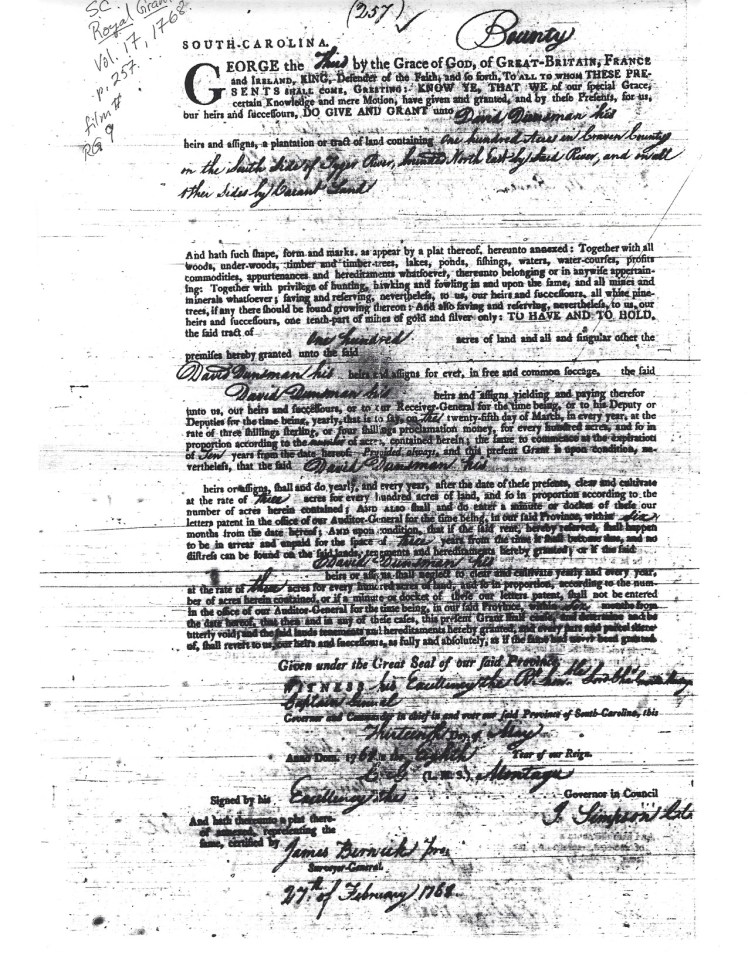 SC
Royal Grants
Vol. 17, 1768
p. 257.
film #
RG 9
(257) ✓
Bounty
SOUTH-CAROLINA.
GEORGE the Third by the Grace of GOD, of GREAT-BRITAIN, FRANCE
and IRELAND, KING, Defender of the Faith, and so forth, TO ALL TO WHOM THESE PRE-
SENTS SHALL COME, GREETING: KNOW YE, THAT WE of our special Grace,
certain Knowledge and mere Motion, have given and granted, and by these Presents, for us,
our heirs and successours, DO GIVE AND GRANT unto David Dunsman his
heirs and assigns, a plantation or tract of land containing One hundred Acres in Craven County
on the South Side of Tyger River, bounded North East by said River, and on all
other Sides by Vacant Land
And hath such shape, form and marks, as appear by a plat thereof, hereunto annexed: Together with all
woods, under-woods, timber and timber-trees, lakes, ponds, fishings, waters, water-courses, profits
commodities, appurtenances and hereditaments whatsoever, thereunto belonging or in anywise appertain-
ing: Together with privilege of hunting, hawking and fowling in and upon the same, and all mines and
minerals whatsoever; saving and reserving, nevertheless, to us, our heirs and successours, all white pine-
trees, if any there should be found growing thereon: And also saving and reserving, nevertheless, to us, our
heirs and successours, one tenth-part of mines of gold and silver only: TO HAVE AND TO HOLD,
the said tract of
One hundred acres of land and all and singular other the
premises hereby granted unto the said
David Dunsman his heirs and assigns for ever, in free and common soccage, the said
David Dunsman his heirs and assigns yielding and paying therefor
unto us, our heirs and successours, or to our Receiver-General for the time being, or to his Deputy or
Deputies for the time being, yearly, that is to say, on the twenty-fifth day of March, in every year, at the
rate of three shillings sterling, or four shillings proclamation money, for every hundred acres, and so in
proportion according to the number of acres, contained herein; the same to commence at the expiration
of Ten years from the date hereof. Provided always, and this present Grant is upon condition, ne-
vertheless, that the said David Dunsman his
heirs or assigns, shall and do yearly, and every year, after the date of these presents, clear and cultivate
at the rate of three acres for every hundred acres of land, and so in proportion according to the
number of acres herein contained; AND ALSO shall and do enter a minute or docket of these our
letters patent in the office of our Auditor-General for the time being, in our said Province, within six
months from the date hereof; AND upon condition, that if the said rent, hereby reserved, shall happen
to be in arrear and unpaid for the space of three years from the time it shall become due, and no
distress can be found on the said lands, tenements and hereditaments hereby granted; or if the said
David Dunsman his
heirs or assigns shall neglect to clear and cultivate yearly and every year,
at the rate of three acres for every hundred acres of land, and so in proportion, according to the num-
ber of acres herein contained, or if a minute or docket of these our letters patent, shall not be entered
in the office of our Auditor-General for the time being, in our said Province, within six months from
the date hereof, that then and in any of these cases, this present Grant shall cease, and be
utterly void; and the said lands tenements and hereditaments hereby granted, and every part and parcel there-
of, shall revert to us, our heirs and successours, as fully and absolutely, as if the same had never been granted.
Given under the Great Seal of our said Province.
WITNESS his Excellency the Rt. hon. Lord
Captain General
Governor and Commander in chief in and over our said Province of South-Carolina, this
Thirteenth Day of May
Anno Dom. 1768 in the Eighth Year of our Reign.
(L. M. S.), Montagu
Signed by his Excellency the Governor in Council
And hath thereunto a plat there-
of annexed, representing the
same, certified by
James Berwick
Surveyor-General.
27th of February 1768.
J. Simpson